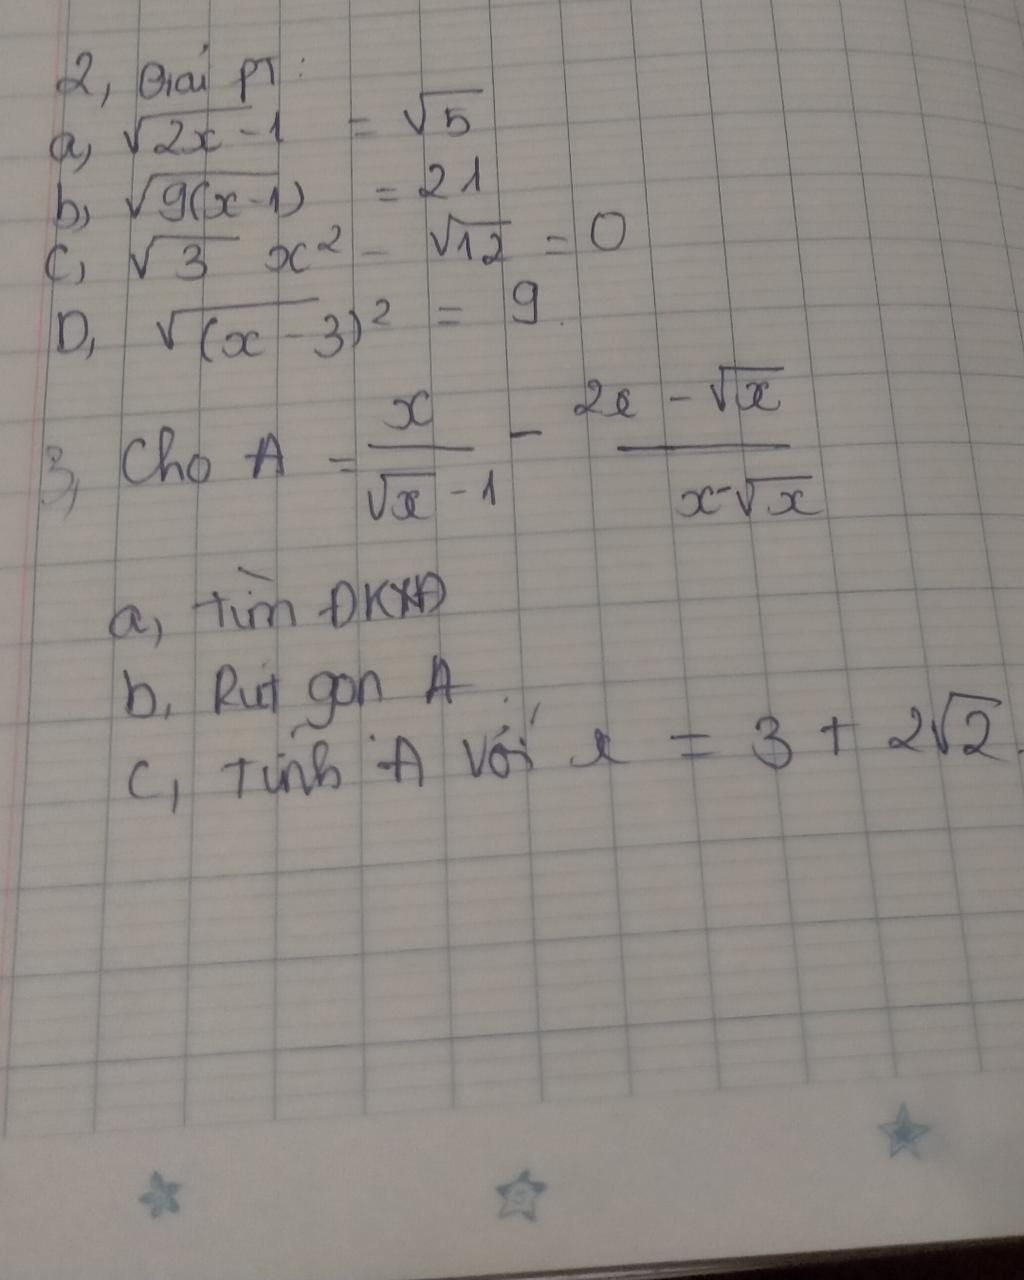 2, Giải PT:
a, √2x-1 = √5
b, √9(x-1) = 21
c, √3 x² - √12 = 0
D, √(x-3)² = 9.
3, Cho A = x/(√x - 1) - (2x - √x)/(x-√x)
a, Tìm ĐKXĐ
b, Rút gọn A.
c, Tính A với x = 3 + 2√2.